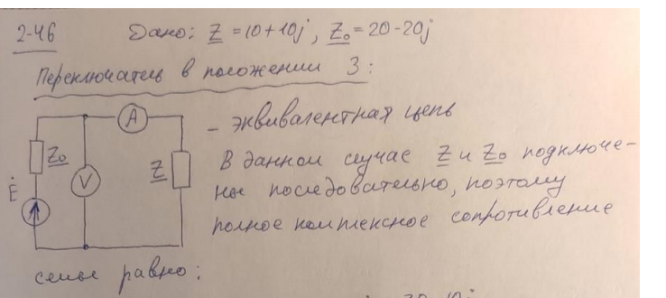 2-46 Дано: Z = 10+10j, Z₀ = 20-20j
Переключатель в положении 3:
A
- эквивалентная цепь
Z₀
V
Z
Ė
В данном случае Z и Z₀ подключе-
ны последовательно, поэтому
полное комплексное сопротивление
семы равно: